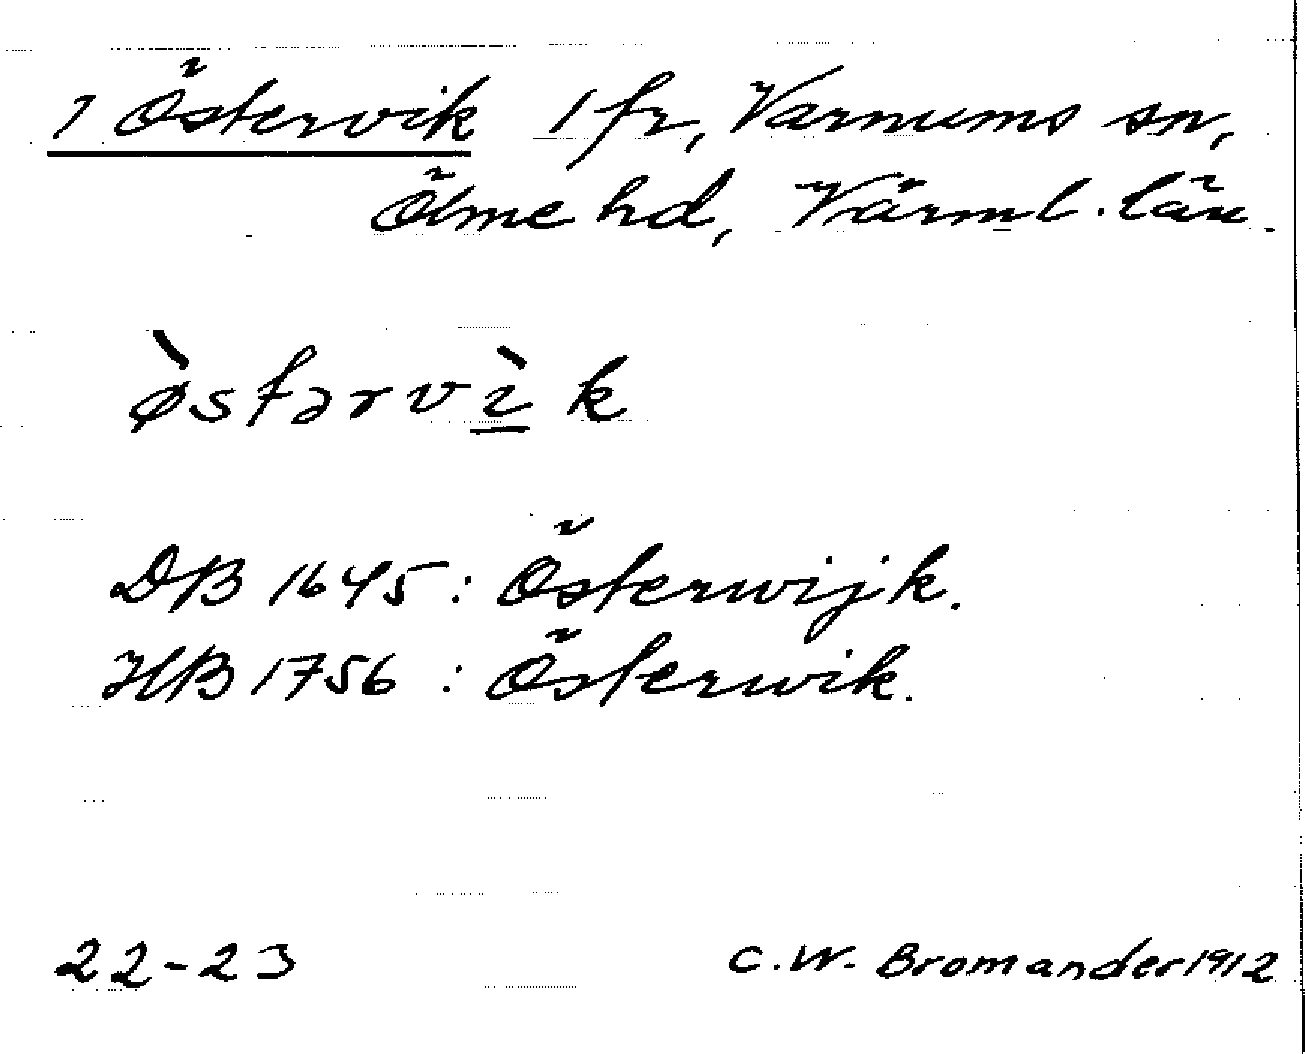 1 Östervik 1 fr, Varnums sn,
Ölme hd, Värml. län.
ø̀stərvı̀k
DB 1645: Österwijk.
HB 1756: Österwik.
22-23 C.W. Bromander 1912